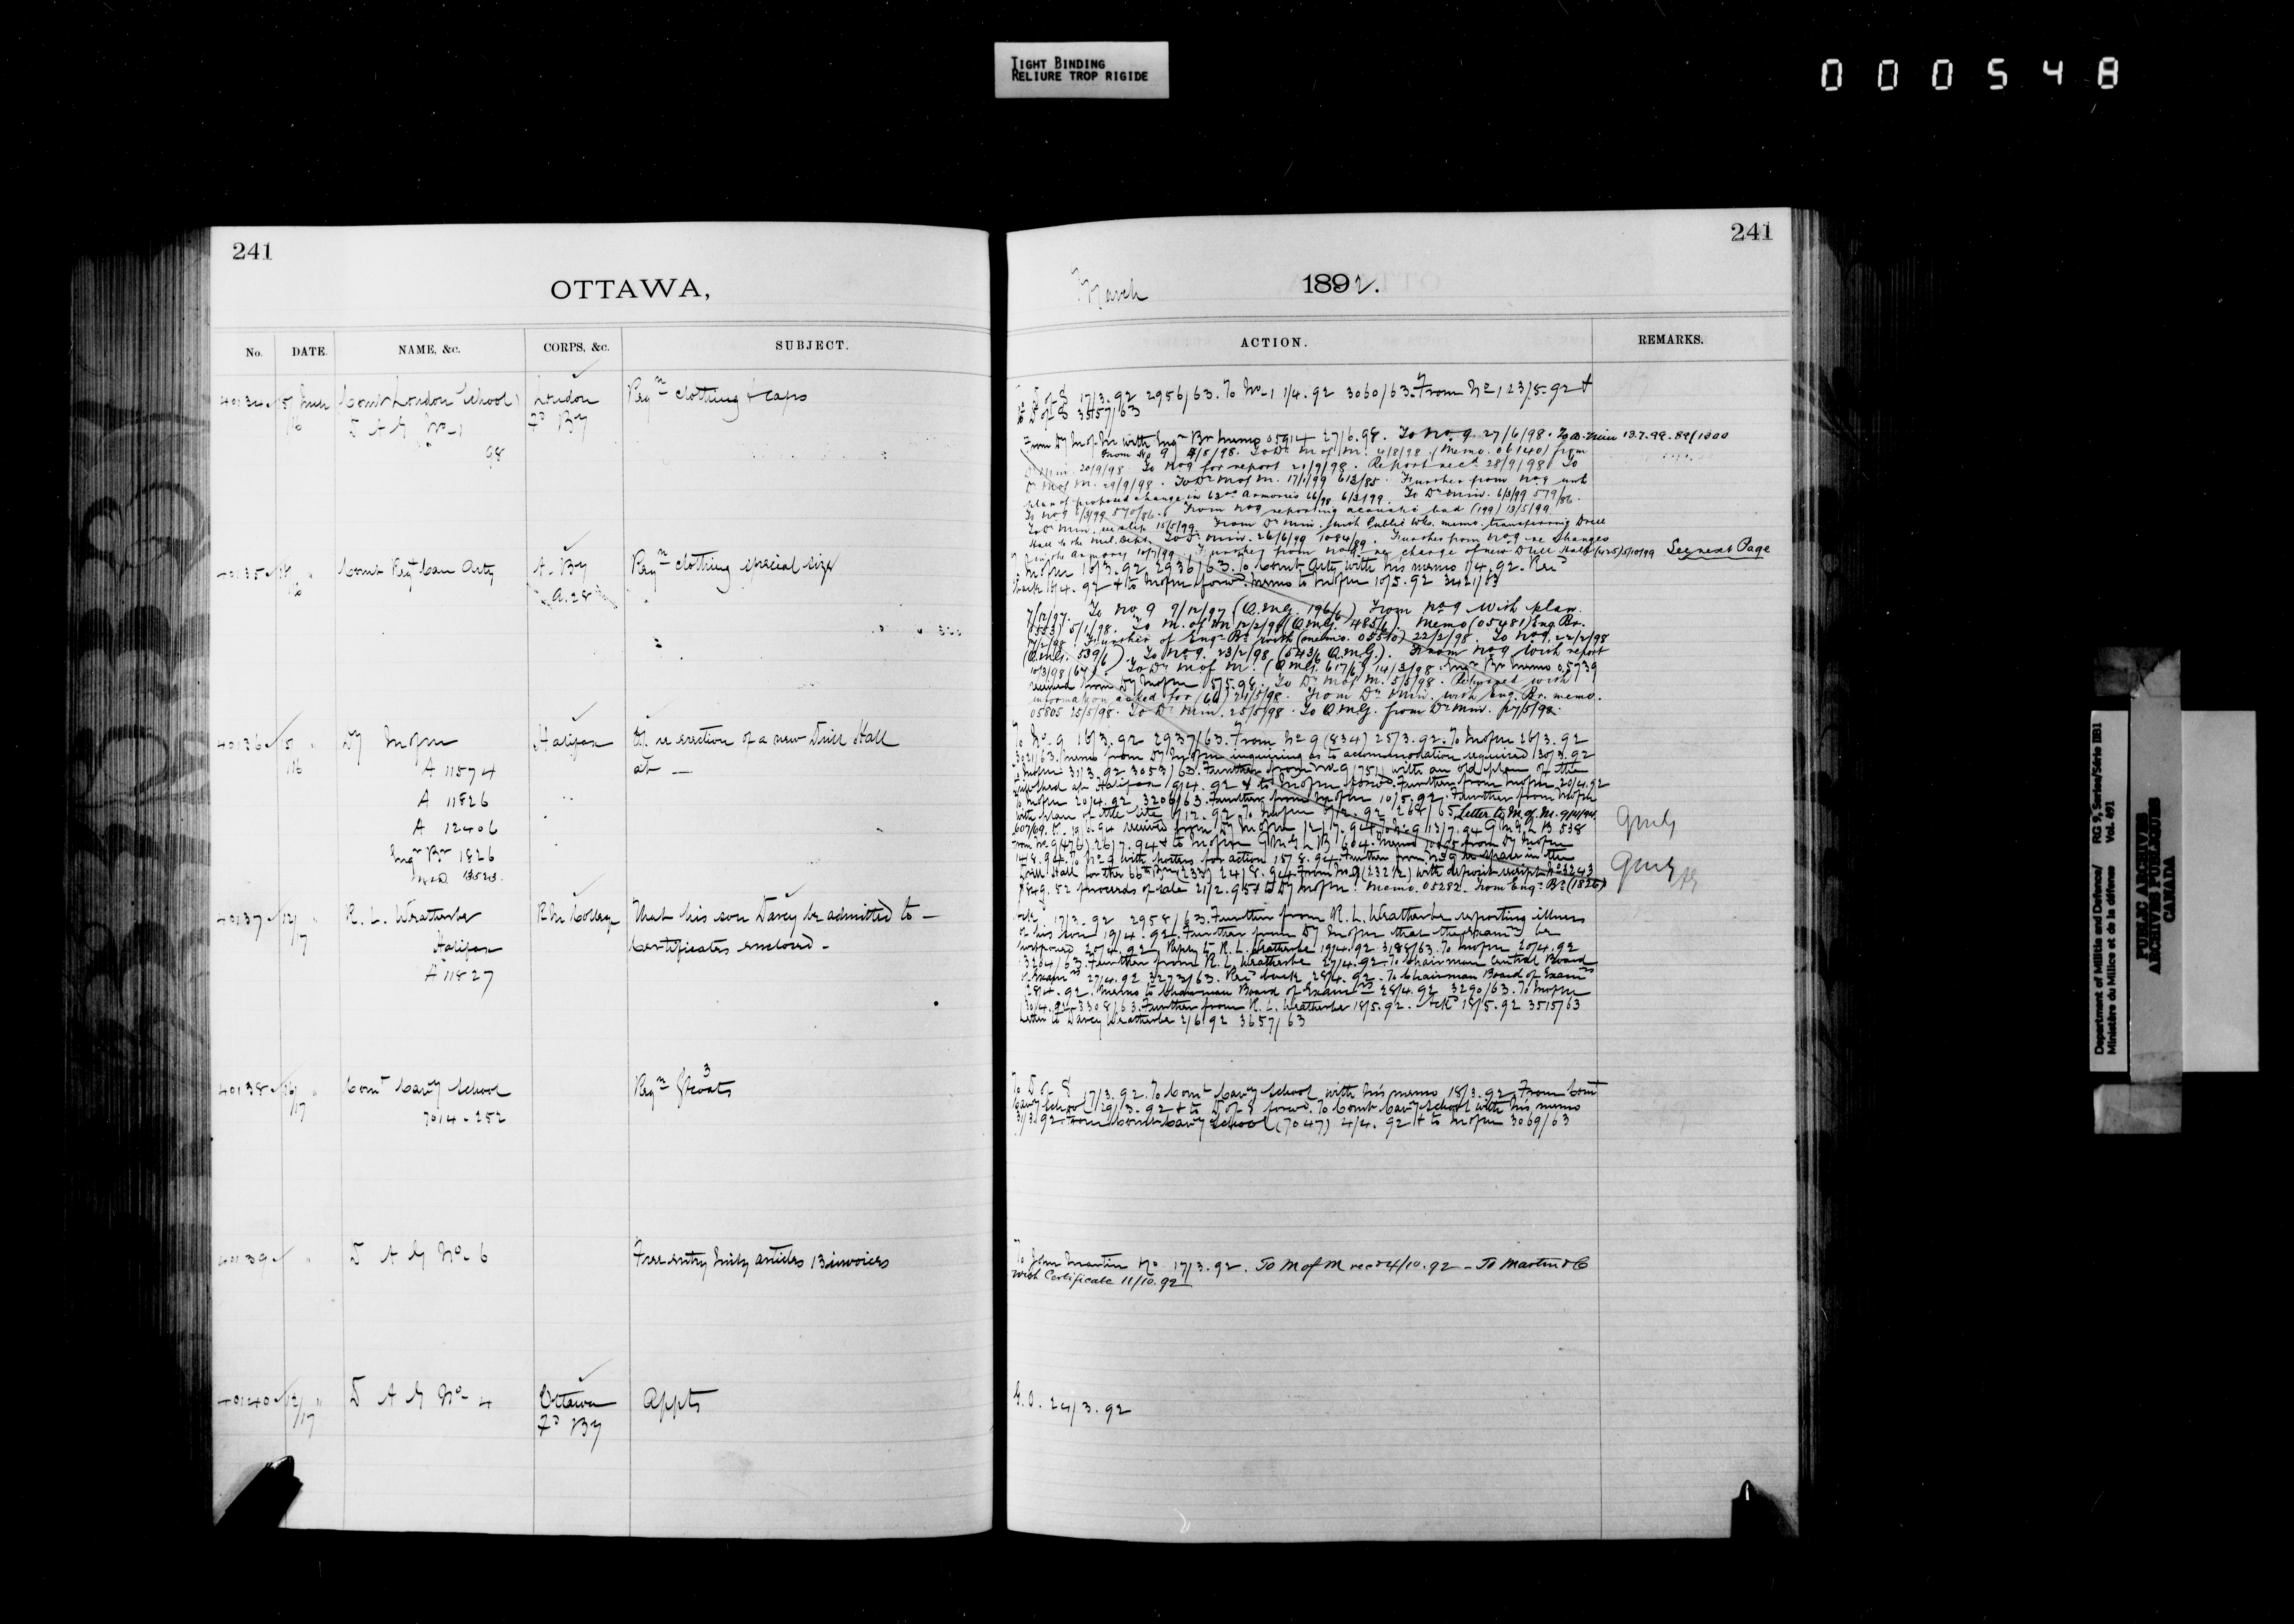 TIGHT BINDING
RELIURE TROP RIGIDE
000548
241
OTTAWA,
No. DATE. NAME, &c. CORPS, &c. SUBJECT.
40134 Comt London School London Reqn clothing & caps
D A G No 1 Fd By
98
40135 Comt Regt Can Arty A. By Reqn clothing special size
A.28
40136 Dy M of M Halifax re erection of a new Drill Hall
A 11574 at —
A 11826
A 12406
Engr Br 1826
13523
40137 R. L. Weatherbe R M College That his son Darcy be admitted to —
Halifax Certificates enclosed —
A 11827
40138 Comt Cavy School Reqn 3
7014-252
40139 D A G No 6 Free entry Mily articles 13 invoices
40140 D A G No 4 Ottawa Appts
Fd By
241
March 1892.
ACTION. REMARKS.
To D of S 17/3.92 2956/63. To No 1 1/4.92 3060/63. From No 1, 23/5.92 &
to D of S 3557/63
From Dy M of M with Engr Br Memo 05914 27/6.98. To No 9 27/6/98. 13.7.99. 89/1000
From No 9 4/8/98. To Dr M of M. 4/8/98 (Memo. 06140) from
20/9/98 To No 9 for report 20/9/98. Report recd 28/9/98 To
Dr M of M. 29/9/98. To Dr M of M. 17/1/99 612/85. Further from No 9 with
plan of proposed change in 63rd Armories 66/98 6/3/99. To Dr Min. 6/3/99 579/86.
From No 9 reporting acoustic bad (199) 13/5/99
15/5/99. From Dr Min. with Public Wks. memo. transferring Drill
Hall to the Mil. Dept. To Dr Min. 26/6/99 1084/89. Further from No 9 re changes
in the armory 10/7/99. Further from No 9 re change of new Drill Hall (425) 5/10/99 See next Page
M of M 16/3.92 2936/63. To Comt Arty with his memo 1/4.92. Recd
back 18/4.92 & to M of M forwd. Memo to M of M 10/5.92 3421/63
7/12/97. To No 9 9/12/97 (Q.M.G. 196/6) From No 9 with plan.
5/1/98. To M. of M 12/2/98 (Q.M.G. 485/6). Memo (05481) Eng. Br.
17/2/98. Further of Engr Br with (memo. 05510) 22/2/98. To No 9. 22/2/98
(Q.M.G. 539/6). To No 9. 23/2/98 (543/6 Q.M.G.). From No 9 with report
10/3/98 (67). To Dr M of M. (Q.M.G. 617/6) 14/3/98. Engr Br memo 05739
received from Dy M of M 5/5.98. To Dr M of M. 5/5/98. Returned with
information asked for (60) 24/5/98. From Dr Min. with Eng. Br. memo.
05805 25/5/98. To Dr Min. 25/5/98. To Q.M.G. from Dr Min. 27/5/98.
To No. 9 16/3.92 2937/63. From No 9 (834) 25/3.92. To M of M 26/3.92
3021/63. Memo from Dy M of M inquiring as to accommodation required 30/3.92
31/3.92 3053/63. Further from No 9 (751) with an old plan of the
at Halifax 19/4.92 & to M of M forwd. Further from M of M 20/4.92
To M of M 20/4.92 3206/63. Further from M of M 10/5.92. Further from M of M
with plan of the site 9/12.92 To M of M Letter to M. of M. 9/4/94.
607/69. received from Dy M of M 12/7.94. To No 9 13/7.94 QMG LB 538 QMG
From No 9 (476) 26/7.94 & to M of M QMG LB 604. Memo from Dy M of M
14/8.94. To No 9 with for action 15/8.94. Further from No 9 re space in the
Drill Hall for the 66th Bn (233) 24/8.94. From No 9 (2322) with deposit receipt No 2243 QMG
$849.52 proceeds of sale 21/2.95 & to Dy M of M. Memo. 05282. From Engr Br (1826)
17/3.92 2958/63. Further from R. L. Weatherbe reporting illness
of his son 19/4.92. Further from Dy M of M that the examn be
postponed 20/4.92. Reply to R. L. Weatherbe 19/4.92 3188/63. To M of M 20/4.92
3204/63. Further from R. L. Weatherbe 27/4.92. To Chairman Central Board
of Examrs 27/4.92 3273/63. Recd back 28/4.92. To Chairman Board of Examrs
28/4.92. Memo to Chairman Board of Examrs 28/4.92 3290/63. To M of M
30/4.92 3308/63. Further from R. L. Weatherbe 18/5.92. Ackd 18/5.92 3515/63
Letter to Darcy Weatherbe 2/6.92 3657/63
To D of S 17/3.92. To Comt Cavy School with his memo 18/3.92. From Comt
Cavy School 29/3.92 & to D of S forwd. To Comt Cavy School with his memo
31/3.92. From Comt Cavy School (7047) 4/4.92 & to M of M 3069/63
To John Martin & Co 17/3.92. To M of M recd 4/10.92 — To Martin & Co
with Certificate 11/10.92
G.O. 24/3.92
Department of Militia and Defence/ RG 9, Series/Série IIB1
Ministère du Milice et de la défense Vol. 491
PUBLIC ARCHIVES
ARCHIVES PUBLIQUES
CANADA